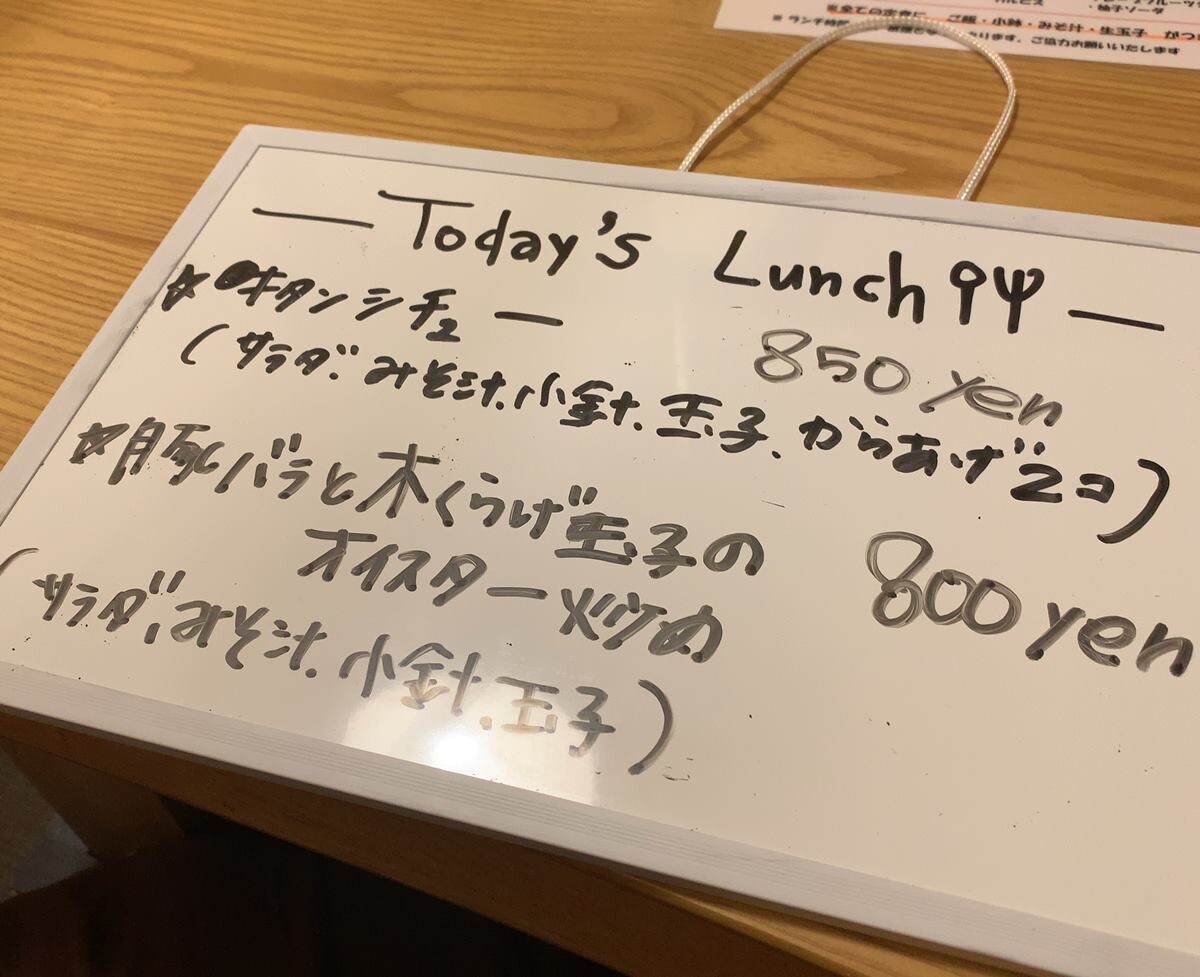 ・柚子ソーダ
※全ての定食に ご飯・小鉢・みそ汁・生玉子 がつ
※ ランチ時間 ります。ご協力お願いいたします
― Today's Lunch ―
☆牛タンシチュー 850 yen
(サラダ、みそ汁、小針、玉子、からあげ2コ)
☆豚バラと木くらげ玉子の
オイスター炒め 800 yen
(サラダ、みそ汁、小針、玉子)